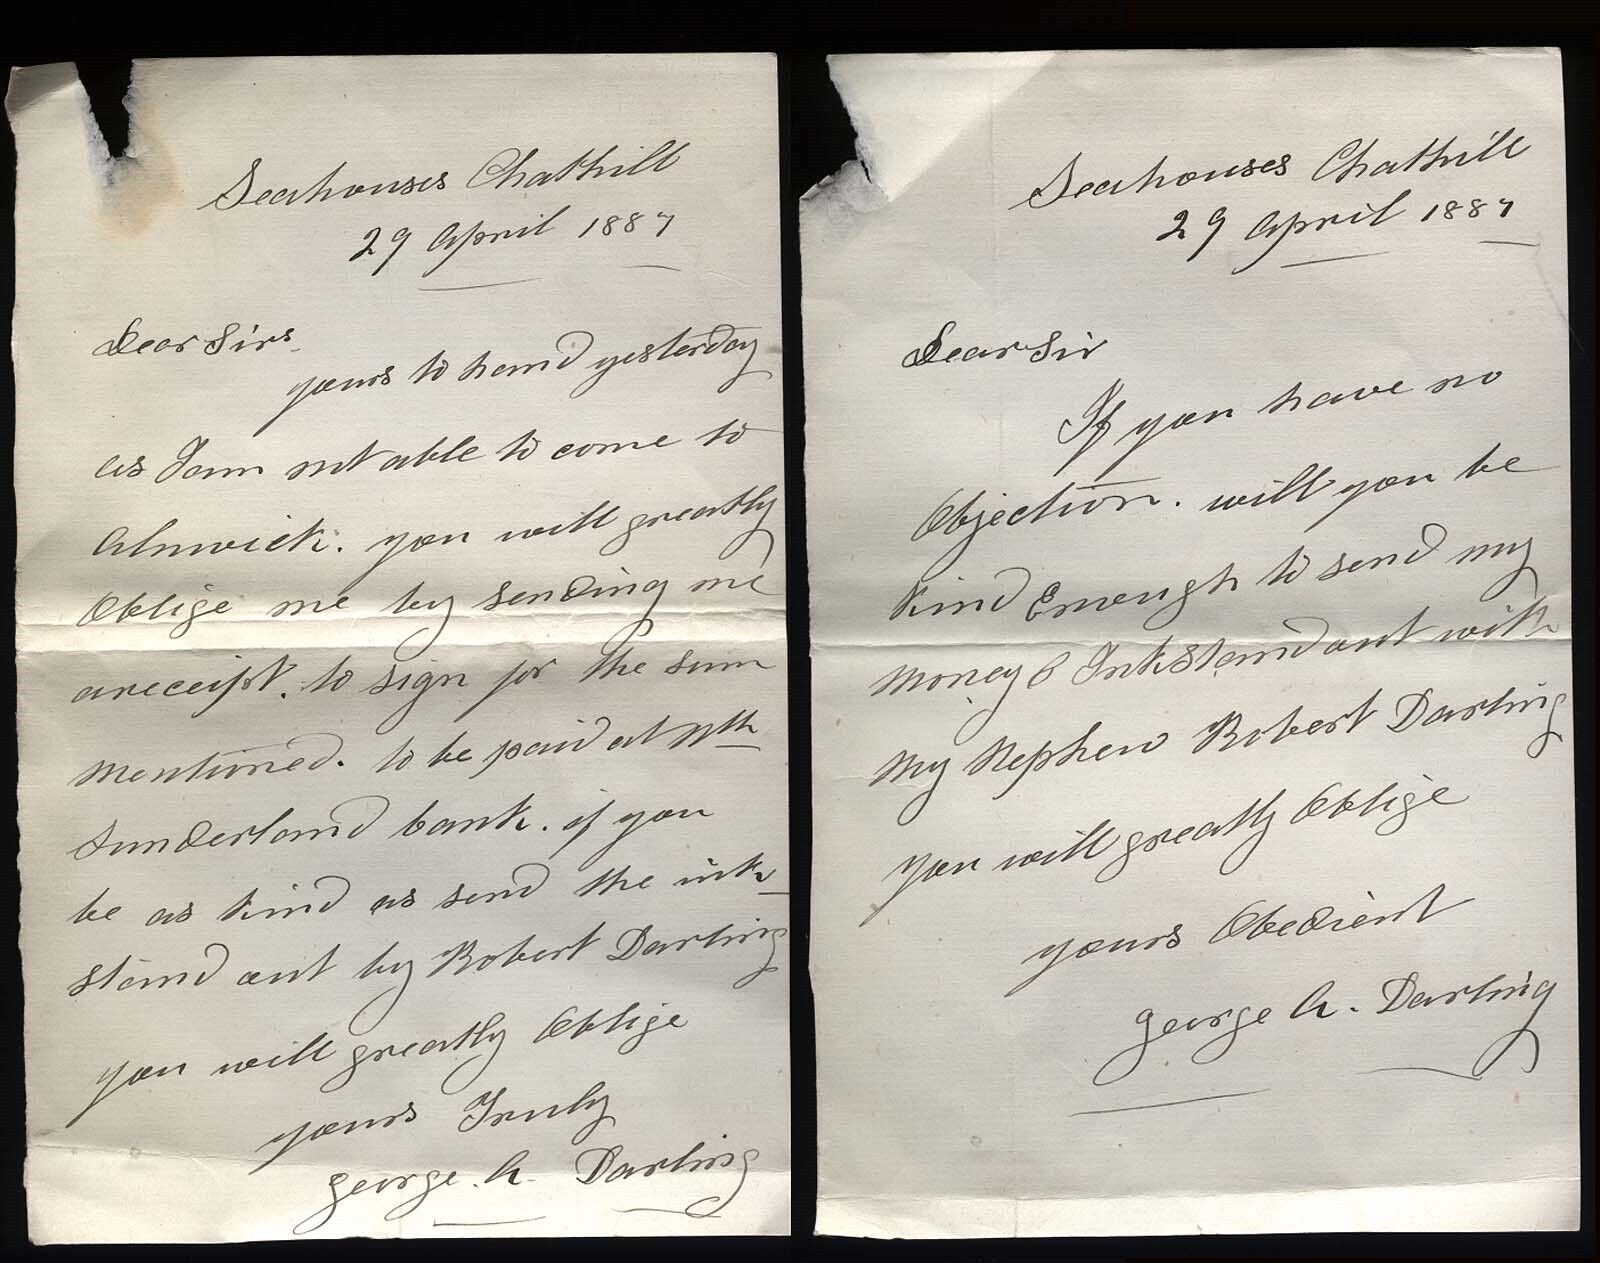 Seahouses Chathill
29 April 1887
Dear Sirs
yours to hand yesterday
as I am not able to come to
Alnwick. you will greatly
Oblige me by sending me
a receipt. to sign for the sum
mentioned. to be paid at
Sunderland bank. if you
be as kind as send the ink
stand out by Robert Darling
you will greatly Oblige
yours Truly
george. A. Darling
Seahouses Chathill
29 April 1887
Dear Sir
If you have no
Objection. will you be
kind Enough to send my
money & Inkstand out with
my Nephew Robert Darling
you will greatly Oblige
yours Obedient
george A. Darling